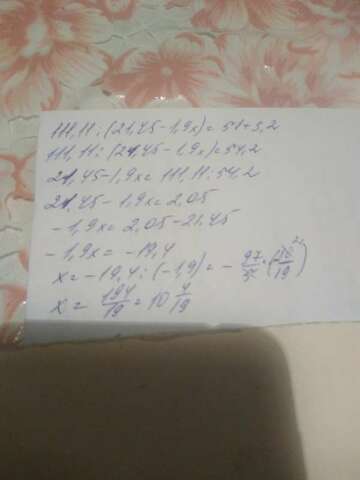 111,11:(21,45-1,9x)=51+3,2
111,11:(21,45-1,9x)=54,2
21,45-1,9x=111,11:54,2
21,45-1,9x=2,05
-1,9x=2,05-21,45
-1,9x=-19,4
x=-19,4:(-1,9)=-97/5·(-10/19)
x=194/19=10 4/19